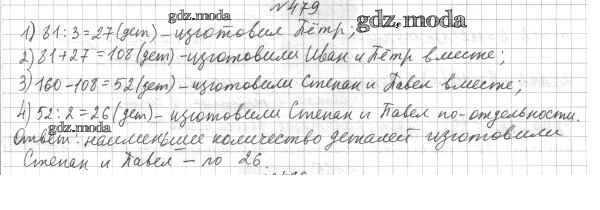 №479
1) 81 : 3 = 27 (дет) – изготовил Пётр;
gdz.moda
gdz.moda
2) 81 + 27 = 108 (дет) – изготовили Иван и Пётр вместе;
3) 160 – 108 = 52 (дет) – изготовили Степан и Павел вместе;
4) 52 : 2 = 26 (дет) – изготовили Степан и Павел по-отдельности.
gdz.moda
Ответ: наименьшее количество деталей изготовили
Степан и Павел – по 26.